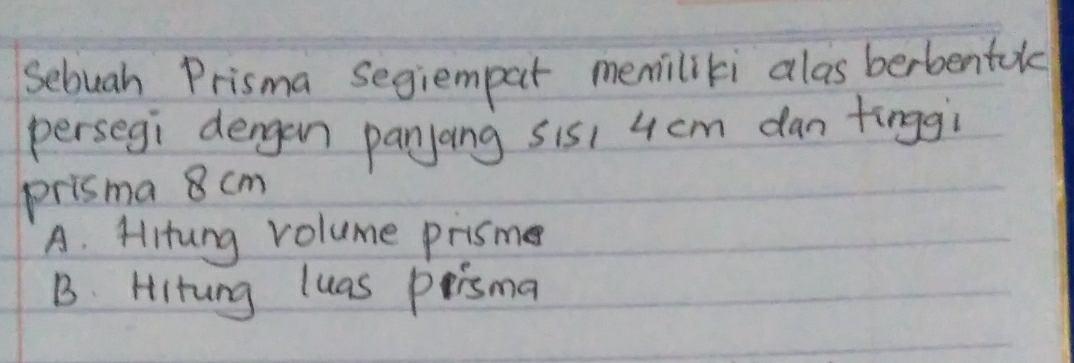 Sebuah Prisma segiempat memiliki alas berbentuk
persegi dengan panjang sisi 4 cm dan tinggi
prisma 8 cm
A. Hitung volume prisma
B. Hitung luas prisma